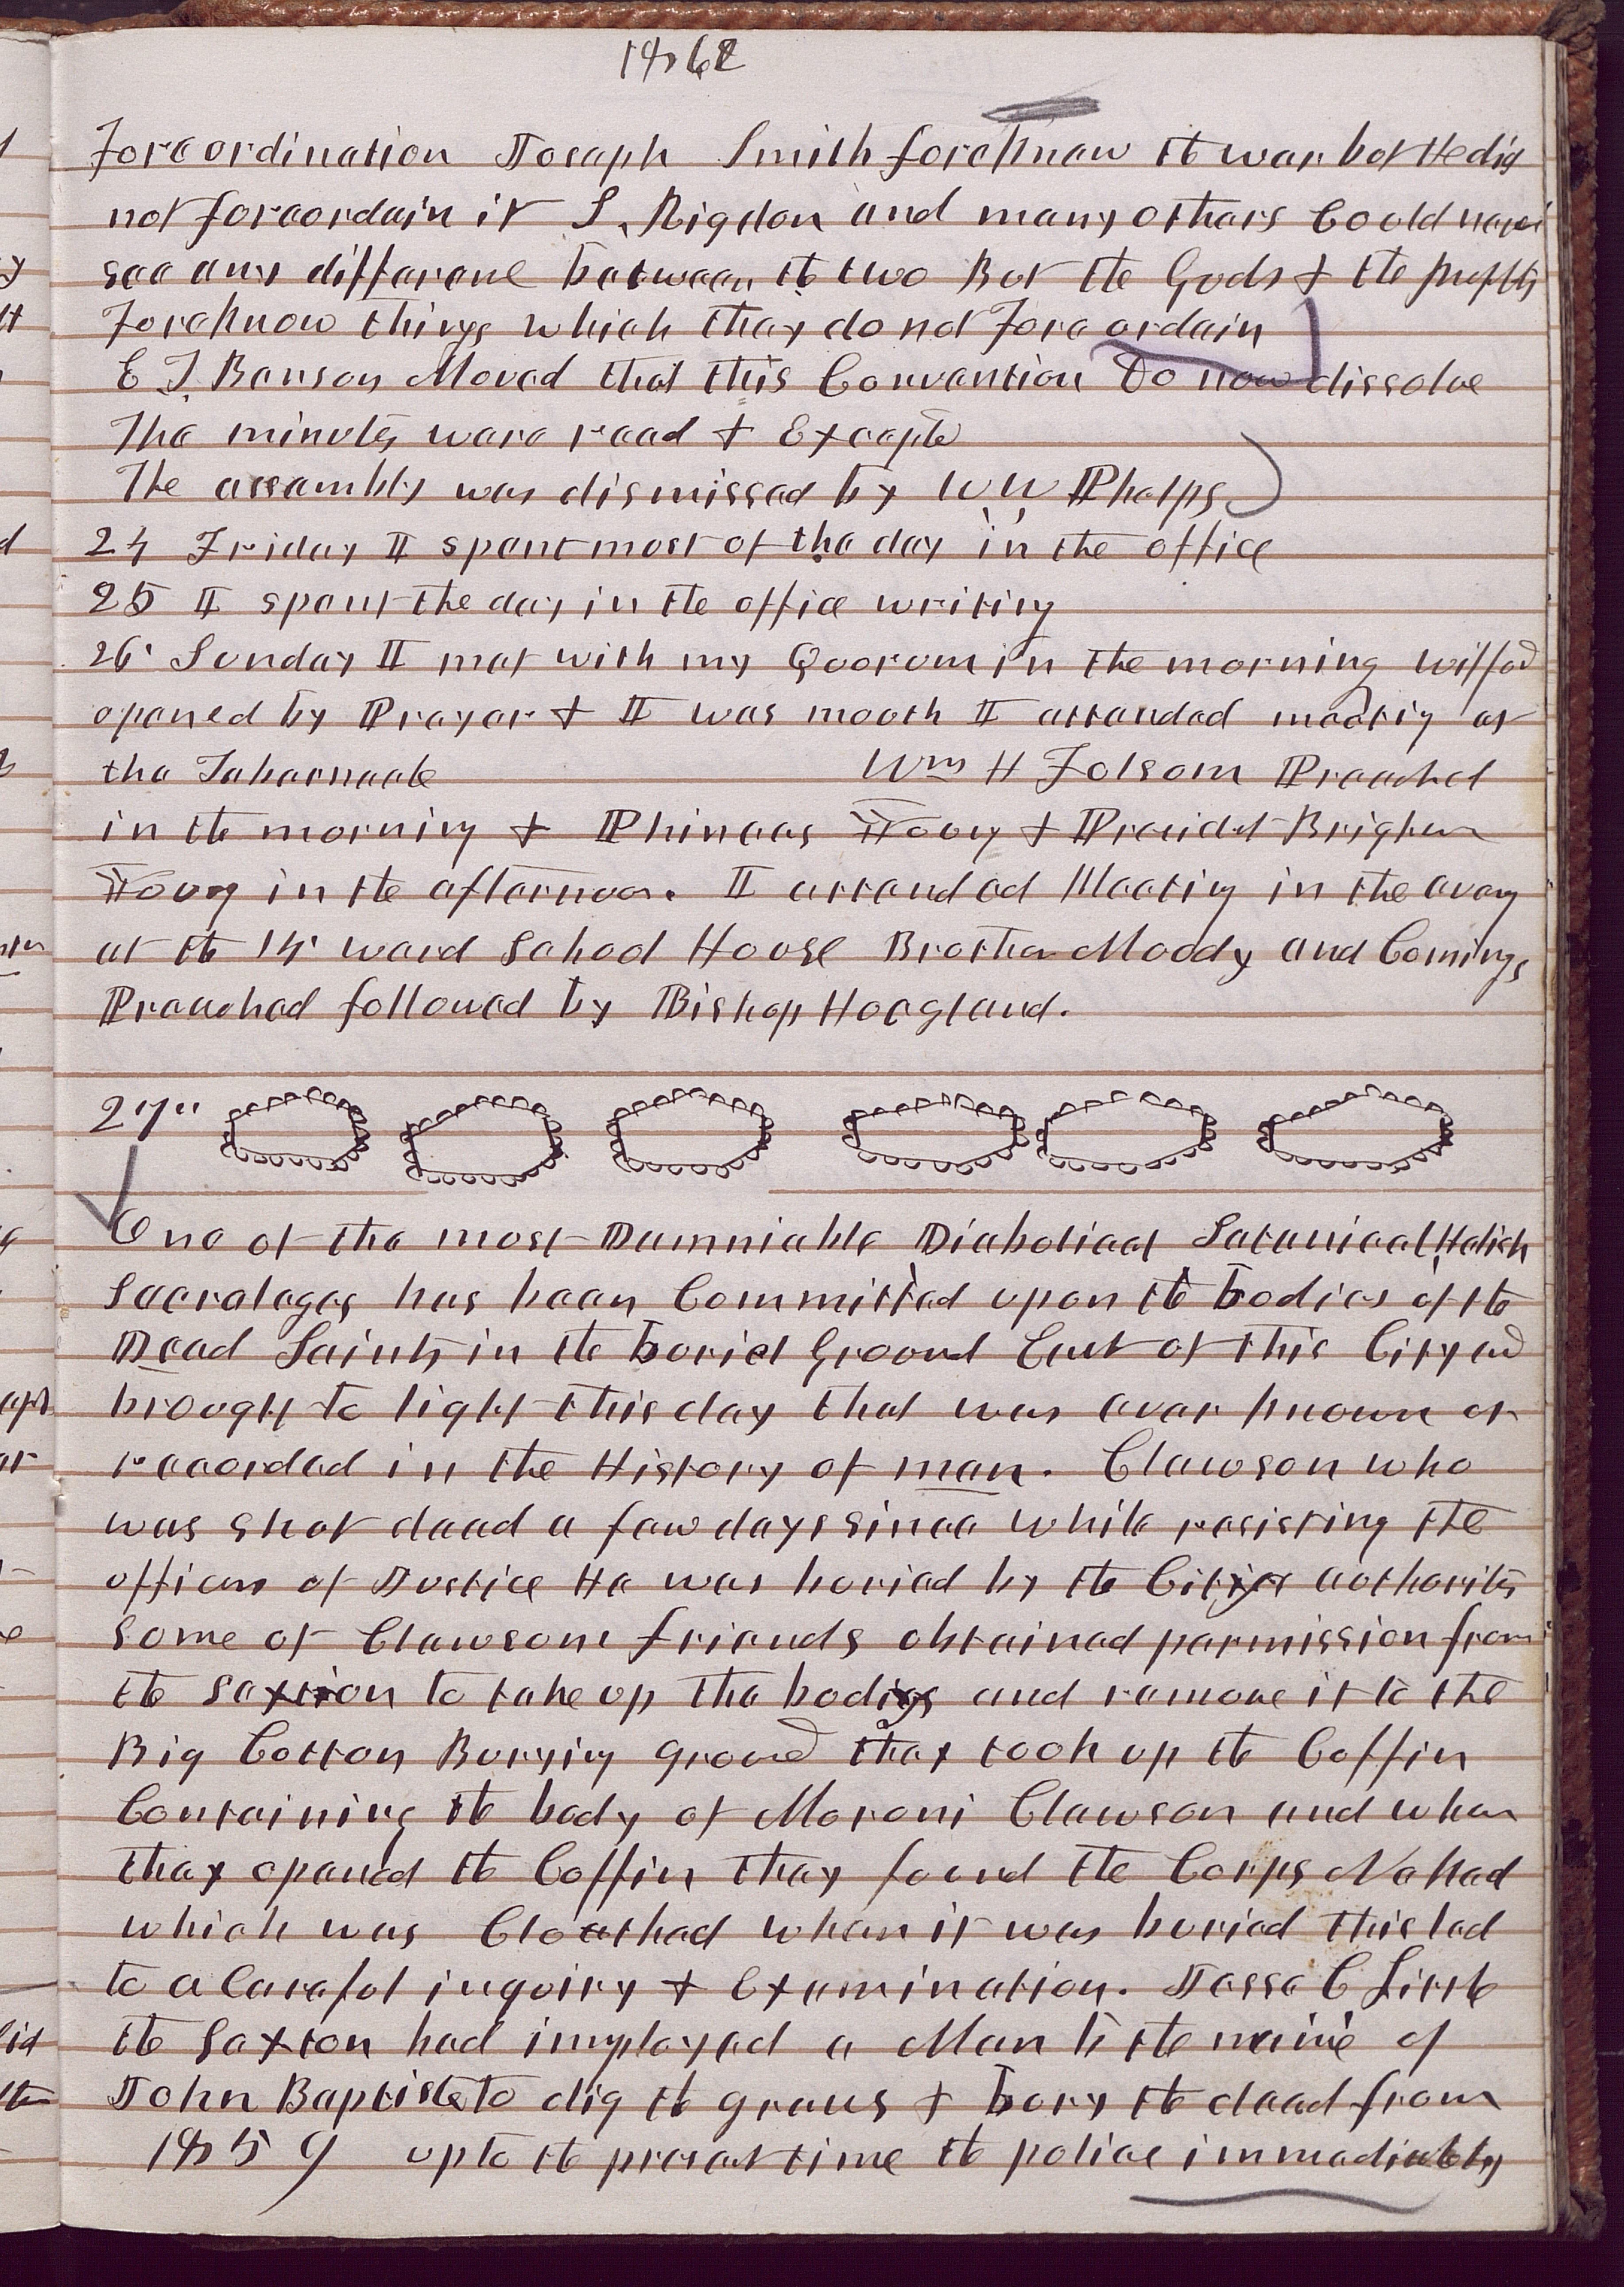 1862
foreordination Joseph Smith foreknew it was but He did
not foreordain it S. Rigdon and many others Could never
see any differene between the two But the Gods & the prophets
foreknow things which they do not fore ordain
E T. Benson Moved that this Convention Do now dissolve
The minutes were read & Excepted
The assembly was dismissed by W. W. Phelps
24 Friday I spent most of the day in the office
25 I spent the day in the office writing
26 Sunday I met with my Quorum in the morning wilford
opened by Prayer & I was mouth I attended meeting at
the Tabernacle Wm H Folsom Preached
in the morning & Phineas Young & President Brigham
Young in the afternoon. I attended Meeting in the eveng
at the 14 ward School House Brother Moody and Comings
Preached followed by Bishop Hoagland.
27"
One of the most Damniable Diabolical Satanical, Helish
Sacraleges has been Committed upon the bodies of the
Dead Saints in the buriel Ground East of this City and
brought to light this day that was ever known or
recorded in the History of man. Clawson who
was shot dead a few days since while resisting the
officers of Justice He was buried by the City authorites
some of Clawsons friends obtained permission from
the Sexton to take up the body and remove it to the
Big Cotton Burying ground they took up the Coffin
Containing the body of Moroni Clawson and when
they opened the Coffin they found the Corps Naked
which was Cloathed when it was buried this led
to a Careful inquiry & examination. Jesse C Little
the Sexton had imployed a Man by the name of
John Baptiste to dig the graves & bury the dead from
1859 up to the present time the police immediately